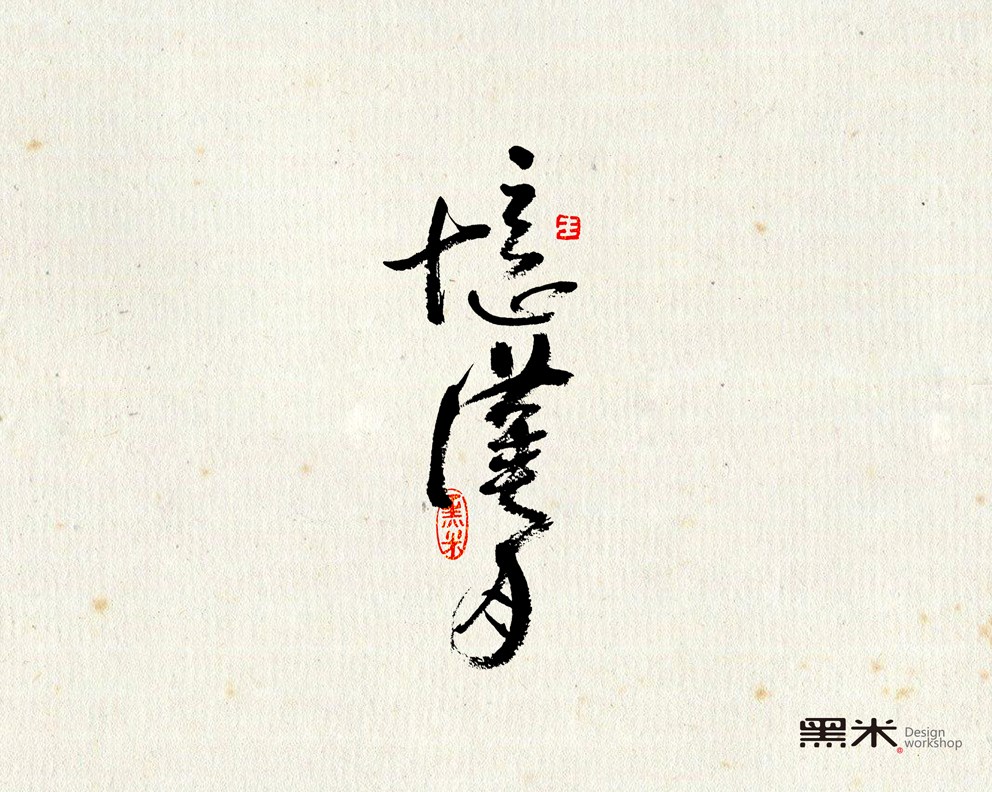 憶漢月
黑米
黑米
Design
workshop